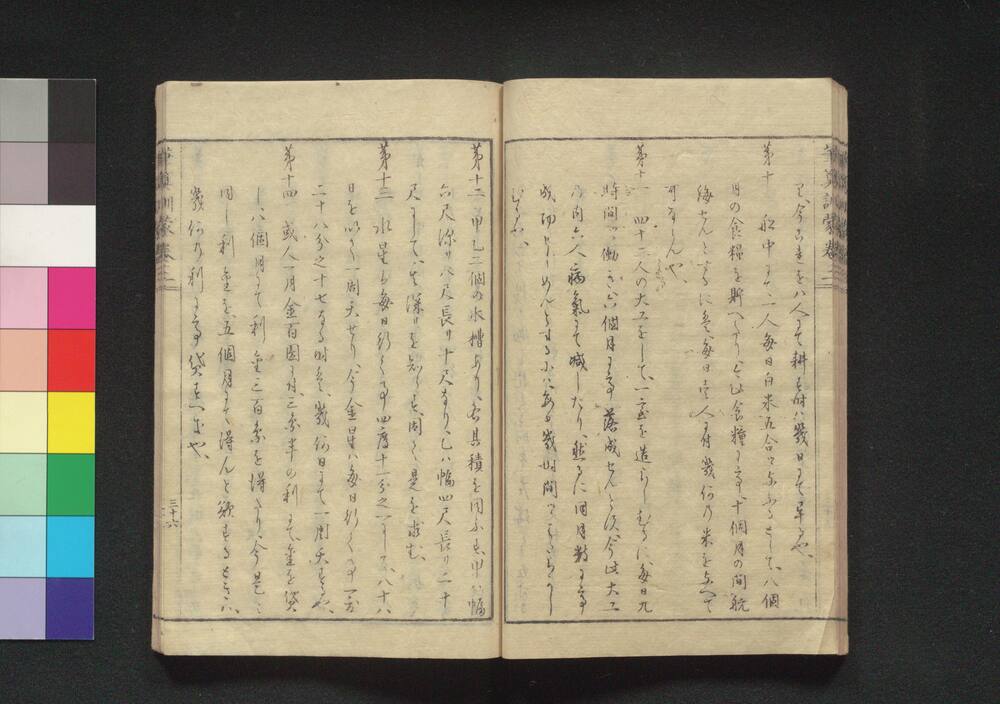 ヒ、今此⿺を八人にて耕す時ハ幾日にて畢るや、
第十 船中にて一人毎日白米五合ツヽ與ふるとして、八個
月の食糧を貯へたり、此食糧にて、十個月の間航
海せんとするに是毎日壱人に付幾何の米を与へて
可ならんや、
第十一 四十二人の大工をして、一宅を造らしむるに、毎日九
時間ツヽ働き、六個月にて落成せんと、今此大工
の内六人病氣にて減したり、然るに同月數にて
成功せしめんとするにハ毎日幾時間ツヽ
第十二 甲乙二個の水槽あり、各其積を同ふす、甲ハ幅
六尺深サ八尺長サ十尺なり、乙ハ幅四尺長サ二十
尺にして、其深サを知らす、因て是を求む、
第十三 水星ハ毎日行く事四度十一分之一にして、八十八
日を以て一周天せり、今金星ハ毎日行く事一度
二十八分之十七なる時は、幾何日にて一周天するや、
第十四 或人一月金百圓に付、三分半の利にて、金を貸
し、八個月にて利金三百分を得たり、今是と
同し利金を五個月にて得んと欲するときハ、
幾何の利にて貸すへきや、
筆算訓蒙 卷三
三十六